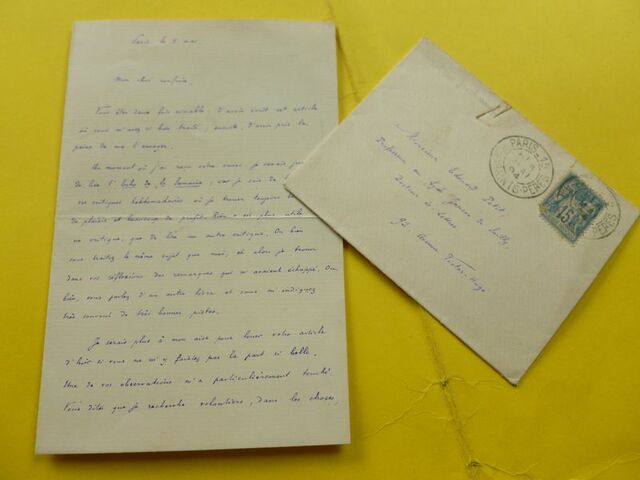 Paris, le 8 mai
Mon cher confrère
Vous êtes deux fois aimable, d'avoir écrit cet article
où vous m'avez si bien traité, ensuite, d'avoir pris la
peine de me l'envoyer.
Au moment où j'ai reçu votre envoi je venais
de lire l'Echo de la Semaine, car je suis de
vos critiques hebdomadaires où je trouve toujours
de plaisir et beaucoup de profit. Rien n'est plus utile
un critique, que de lire un autre critique. Ou bien
vous traitez le même sujet que moi, et alors je trouve
dans vos réflexions des remarques qui m'avaient échappé. Ou
bien, vous parlez d'un autre livre et vous m'indiquez
très souvent de très bonnes pistes.
Je serais plus à mon aise pour louer votre article
d'hier si vous ne m'y faisiez pas la part si belle.
Une de vos observations m'a particulièrement touché.
Vous dites que je recherche volontiers, dans les choses,
Monsieur Edmond
Professeur au Lycée Janson de Sailly
Docteur ès lettres
Avenue Victor-Hugo
PARIS
STS-PERES
15